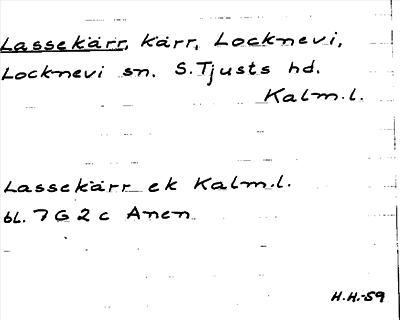 Lassekärr, kärr, Locknevi,
Locknevi sn. S.Tjusts hd.
Kalm.l.
Lassekärr ek Kalm.l.
bl. 7 G 2 c Anen
H.H.-59